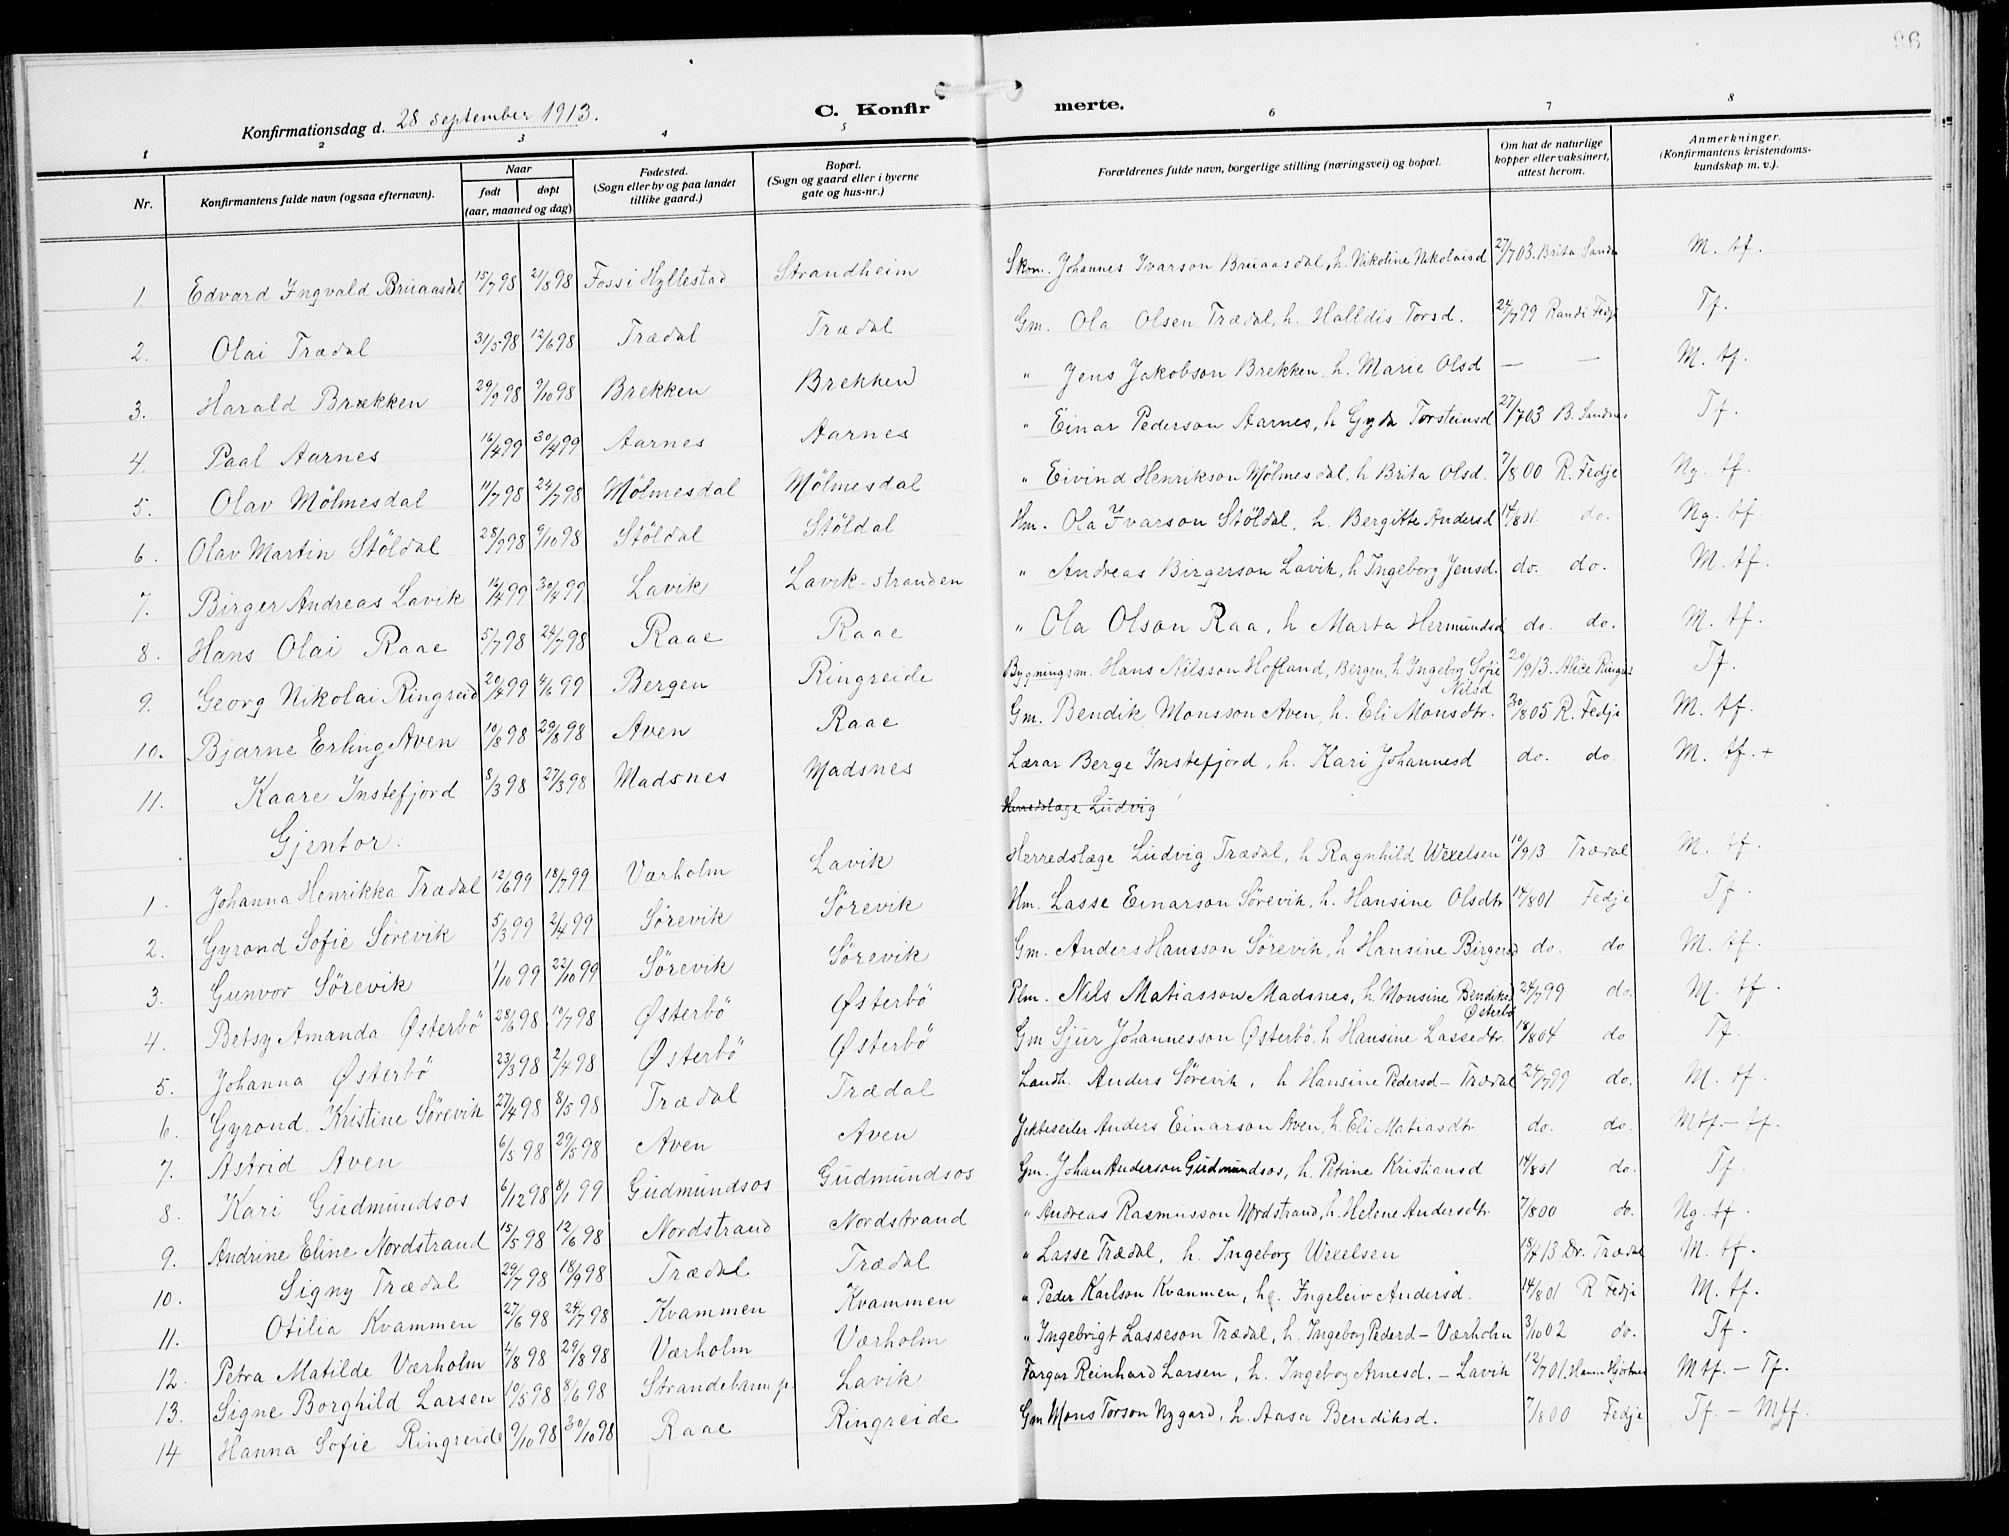 96
C. Konfirmerte.
Konfirmationsdag d. 28 september 1913.
1 2 3 4 5 6 7 8
Nr. Konfirmantens fulde navn (ogsaa efternavn). Naar født døpt (aar, maaned og dag) Fødested. (Sogn eller by og paa landet tillike gaard.) Bopæl. (Sogn og gaard eller i byerne gate og hus-nr.) Forældrenes fulde navn, borgerlige stilling (næringsvei) og bopæl. Om hat de naturlige kopper eller vaksinert, attest herom. Anmerkninger. (Konfirmantens kristendoms-kundskap m. v.).
1. Edvard Ingvald Bruaasdal 15/7 98 21/8 98 Foss i Hyllestad Strandheim Skom. Johannes Ivarson Bruaasdal, h. Nikoline Nikolaisd 27/7 03. Brita Sandn M. tf.
2. Olai Trædal 31/5 98 12/6 98 Trædal Trædal Gm. Ola Olsen Trædal, h. Halldis Torsd. 24/7 99 Randi Fedje Tf.
3. Harald Brækken 29/9 98 9/10 98 Brekken Brekken " Jens Jakobson Brekken, h. Marie Olsd — — M. tf.
4. Paal Aarnes 16/4 99 30/4 99 Aarnes Aarnes " Einar Pederson Aarnes, h Gyda Torsteinsd 27/7 03 B. Sandnes Tf.
5. Olav Mölmesdal 11/7 98 24/7 98 Mölmesdal Mölmesdal " Eivind Henrikson Mölmesdal, h Brita Olsd. 7/8 00 R. Fedje Ng. tf.
6. Olav Martin Stöldal 28/9 98 9/10 98 Stöldal Stöldal Hm. Ola Ivarson Stöldal, h. Bergitte Andersd 14/8 01 do. Ng. tf.
7. Birger Andreas Lavik 16/4 99 30/4 99 Lavik Lavik-stranden " Andreas Birgerson Lavik, h Ingeborg Jensd. do. do. M. tf.
8. Hans Olai Raae 5/7 98 24/7 98 Raae Raae " Ola Olson Raa, h Marta Hermundsd do. do. M. tf.
9. Georg Nikolai Ringreid 20/4 99 4/6 99 Bergen Ringreide Bygningsm. Hans Nilsson Hofland, Bergen, h Ingeborg Sofie Nilsd 20/9 13. Tf.
10. Bjarne Erling Aven 10/8 98 29/8 98 Aven Raae Gm. Bendik Monsson Aven, h. Eli Monsdtr. 30/8 05 R. Fedje M. tf.
11. Kaare Instefjord 8/3 98 27/3 98 Madsnes Madsnes Lærar Berge Instefjord, h. Kari Johannesd do. do. M. tf. +
Herredslæge Ludvig
Gjentor:
1. Johanna Henrikka Trædal 12/6 99 18/7 99 Værholm Lavik Herredslæge Ludvig Trædal, h Ragnhild Wexelsen 10/9 13 Trædal M. tf.
2. Gyrond Sofie Sörevik 5/3 99 2/4 99 Sörevik Sörevik Hm. Lasse Einarson Sörevik, h. Hansine Olsdtr 14/8 01 Fedje Tf.
3. Gunvor Sörevik 1/10 99 22/10 99 Sörevik Sörevik Gm. Anders Hansson Sörevik, h Hansine Birgersd do. do M. tf.
4. Betsy Amanda Østerbö 28/6 98 10/7 98 Østerbö Østerbö Plm. Nils Matiasson Madsnes, h. Monsine Bendiksd Østerbö 24/7 99 do. M. tf.
5. Johanna Østerbö 23/3 98 2/4 98 Østerbö Østerbö Gm Sjur Johannesson Østerbö, h Hansine Lassedtr 18/8 04 do Tf.
6. Gyrond Kristine Sörevik 27/4 98 8/5 98 Trædal Trædal Landh. Anders Sörevik, h Hansine Pedersd - Trædal 24/7 99 do. M. tf.
7. Astrid Aven 6/5 98 29/5 98 Aven Aven Jekteseiler Anders Einarson Aven, h. Eli Matiasdtr do. do. Mtf. - tf.
8. Kari Gudmundsos 6/12 98 8/1 99 Gudmundsos Gudmundsos Gm. Johan Anderson Gudmundsos, h. Petrine Kristiansd 14/8 01 do. Tf
9. Andrine Eline Nordstrand 15/5 98 12/6 98 Nordstrand Nordstrand " Andreas Rasmusson Nordstrand, h. Helene Andersdtr. 7/8 00 do. Ng. tf.
10. Signy Trædal 29/7 98 18/9 98 Trædal Trædal " Lasse Trædal, h. Ingeborg Wexelsen 18/7 13 Dr. Trædal M. tf.
11. Otilia Kvammen 27/6 98 24/7 98 Kvammen Kvammen " Peder Karlson Kvammen, hg. Ingeleiv Andersd. 14/8 01 R Fedje M. tf.
12. Petra Matilde Værholm 4/8 98 29/8 98 Værholm Værholm " Ingebrigt Lasseson Trædal, h. Ingeborg Pederd - Værholm 3/10 02 do. Tf.
13. Signe Borghild Larsen 10/5 98 8/6 98 Strandebarm p. Lavik Fargar Reinhard Larsen, h. Ingeborg Arnesd. - Lavik 12/7 01. Mtf. - Tf.
14 Hanna Sofie Ringreide 9/10 98 30/10 98 Raae Ringreide Gm Mons Torson Nygard, h. Aasa Bendiksd. 7/8 00 Fedje Tf. - Mtf.